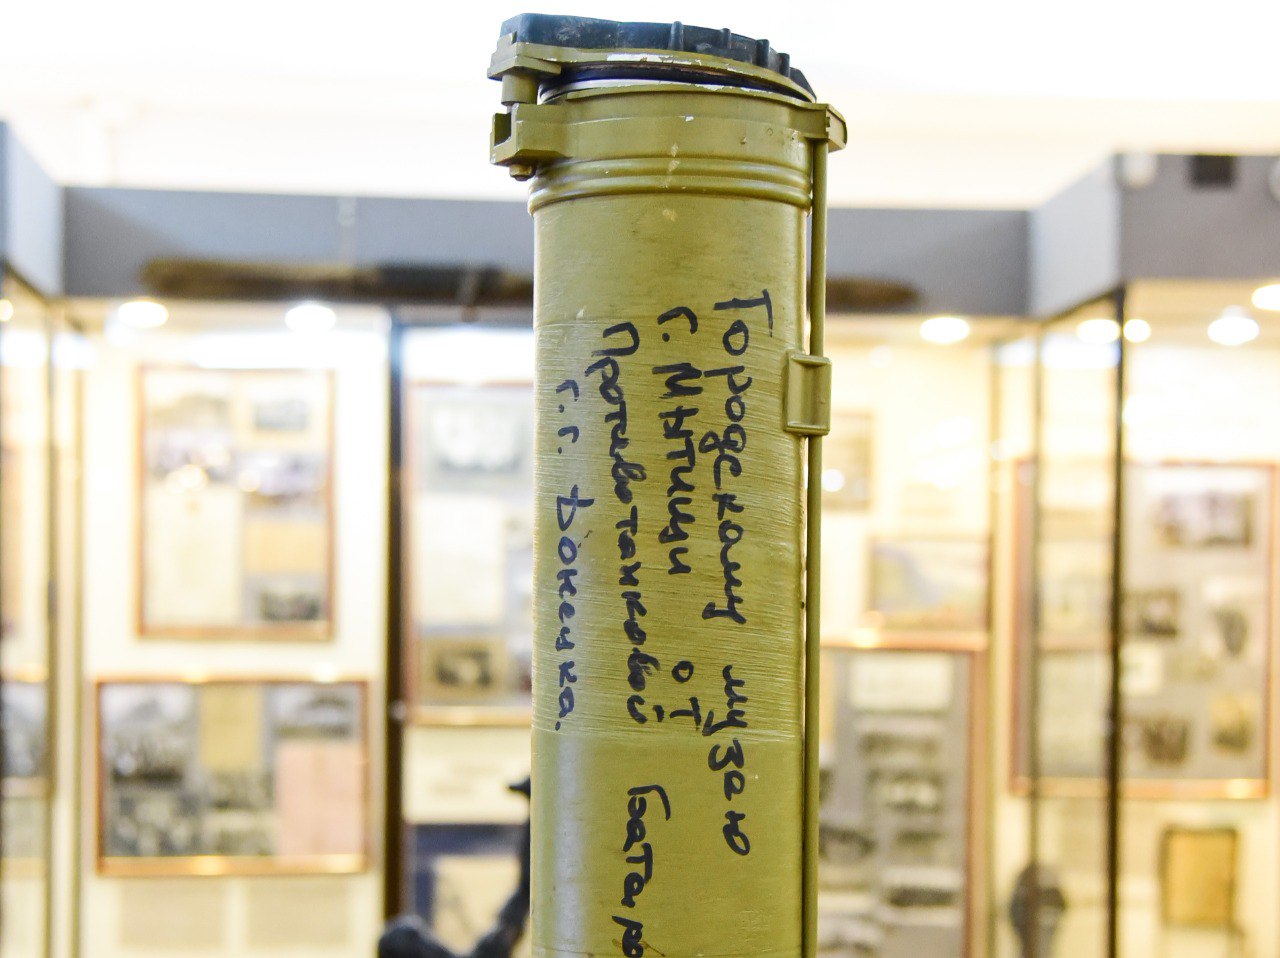 Городскому музею
г. Мытищи от
Противотанковой Батаре
г.г. Донецка.